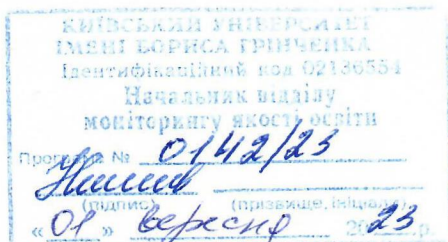 КИЇВСЬКИЙ УНІВЕРСИТЕТ
ІМЕНІ БОРИСА ГРІНЧЕНКА
Ідентифікаційний код 02136554
Начальник відділу
моніторингу якості освіти
Програма № 0142/23
(підпис) (прізвище, ініціали)
«01» вересня 2023 р.